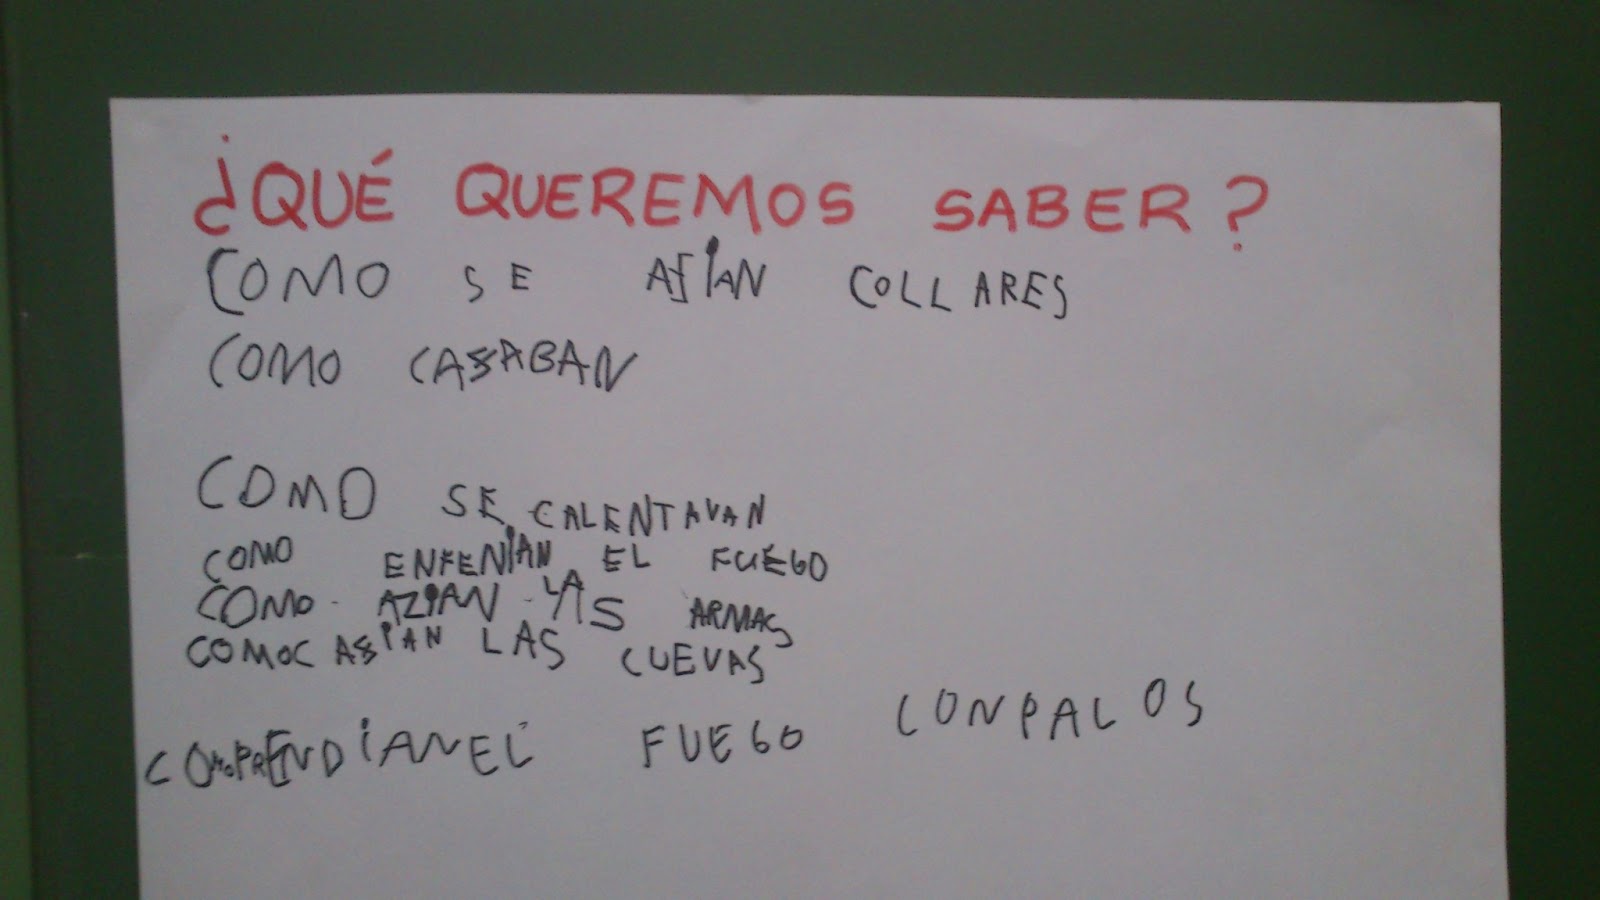 ¿QUÉ QUEREMOS SABER?
COMO SE ASIAN COLLARES
COMO CASABAN
COMO SE CALENTAVAN
COMO ENFENIAN EL FUEGO
COMO AZIAN LAS ARMAS
COMOC ASIAN LAS CUEVAS
COMOPRENDIANEL FUEGO CONPALOS